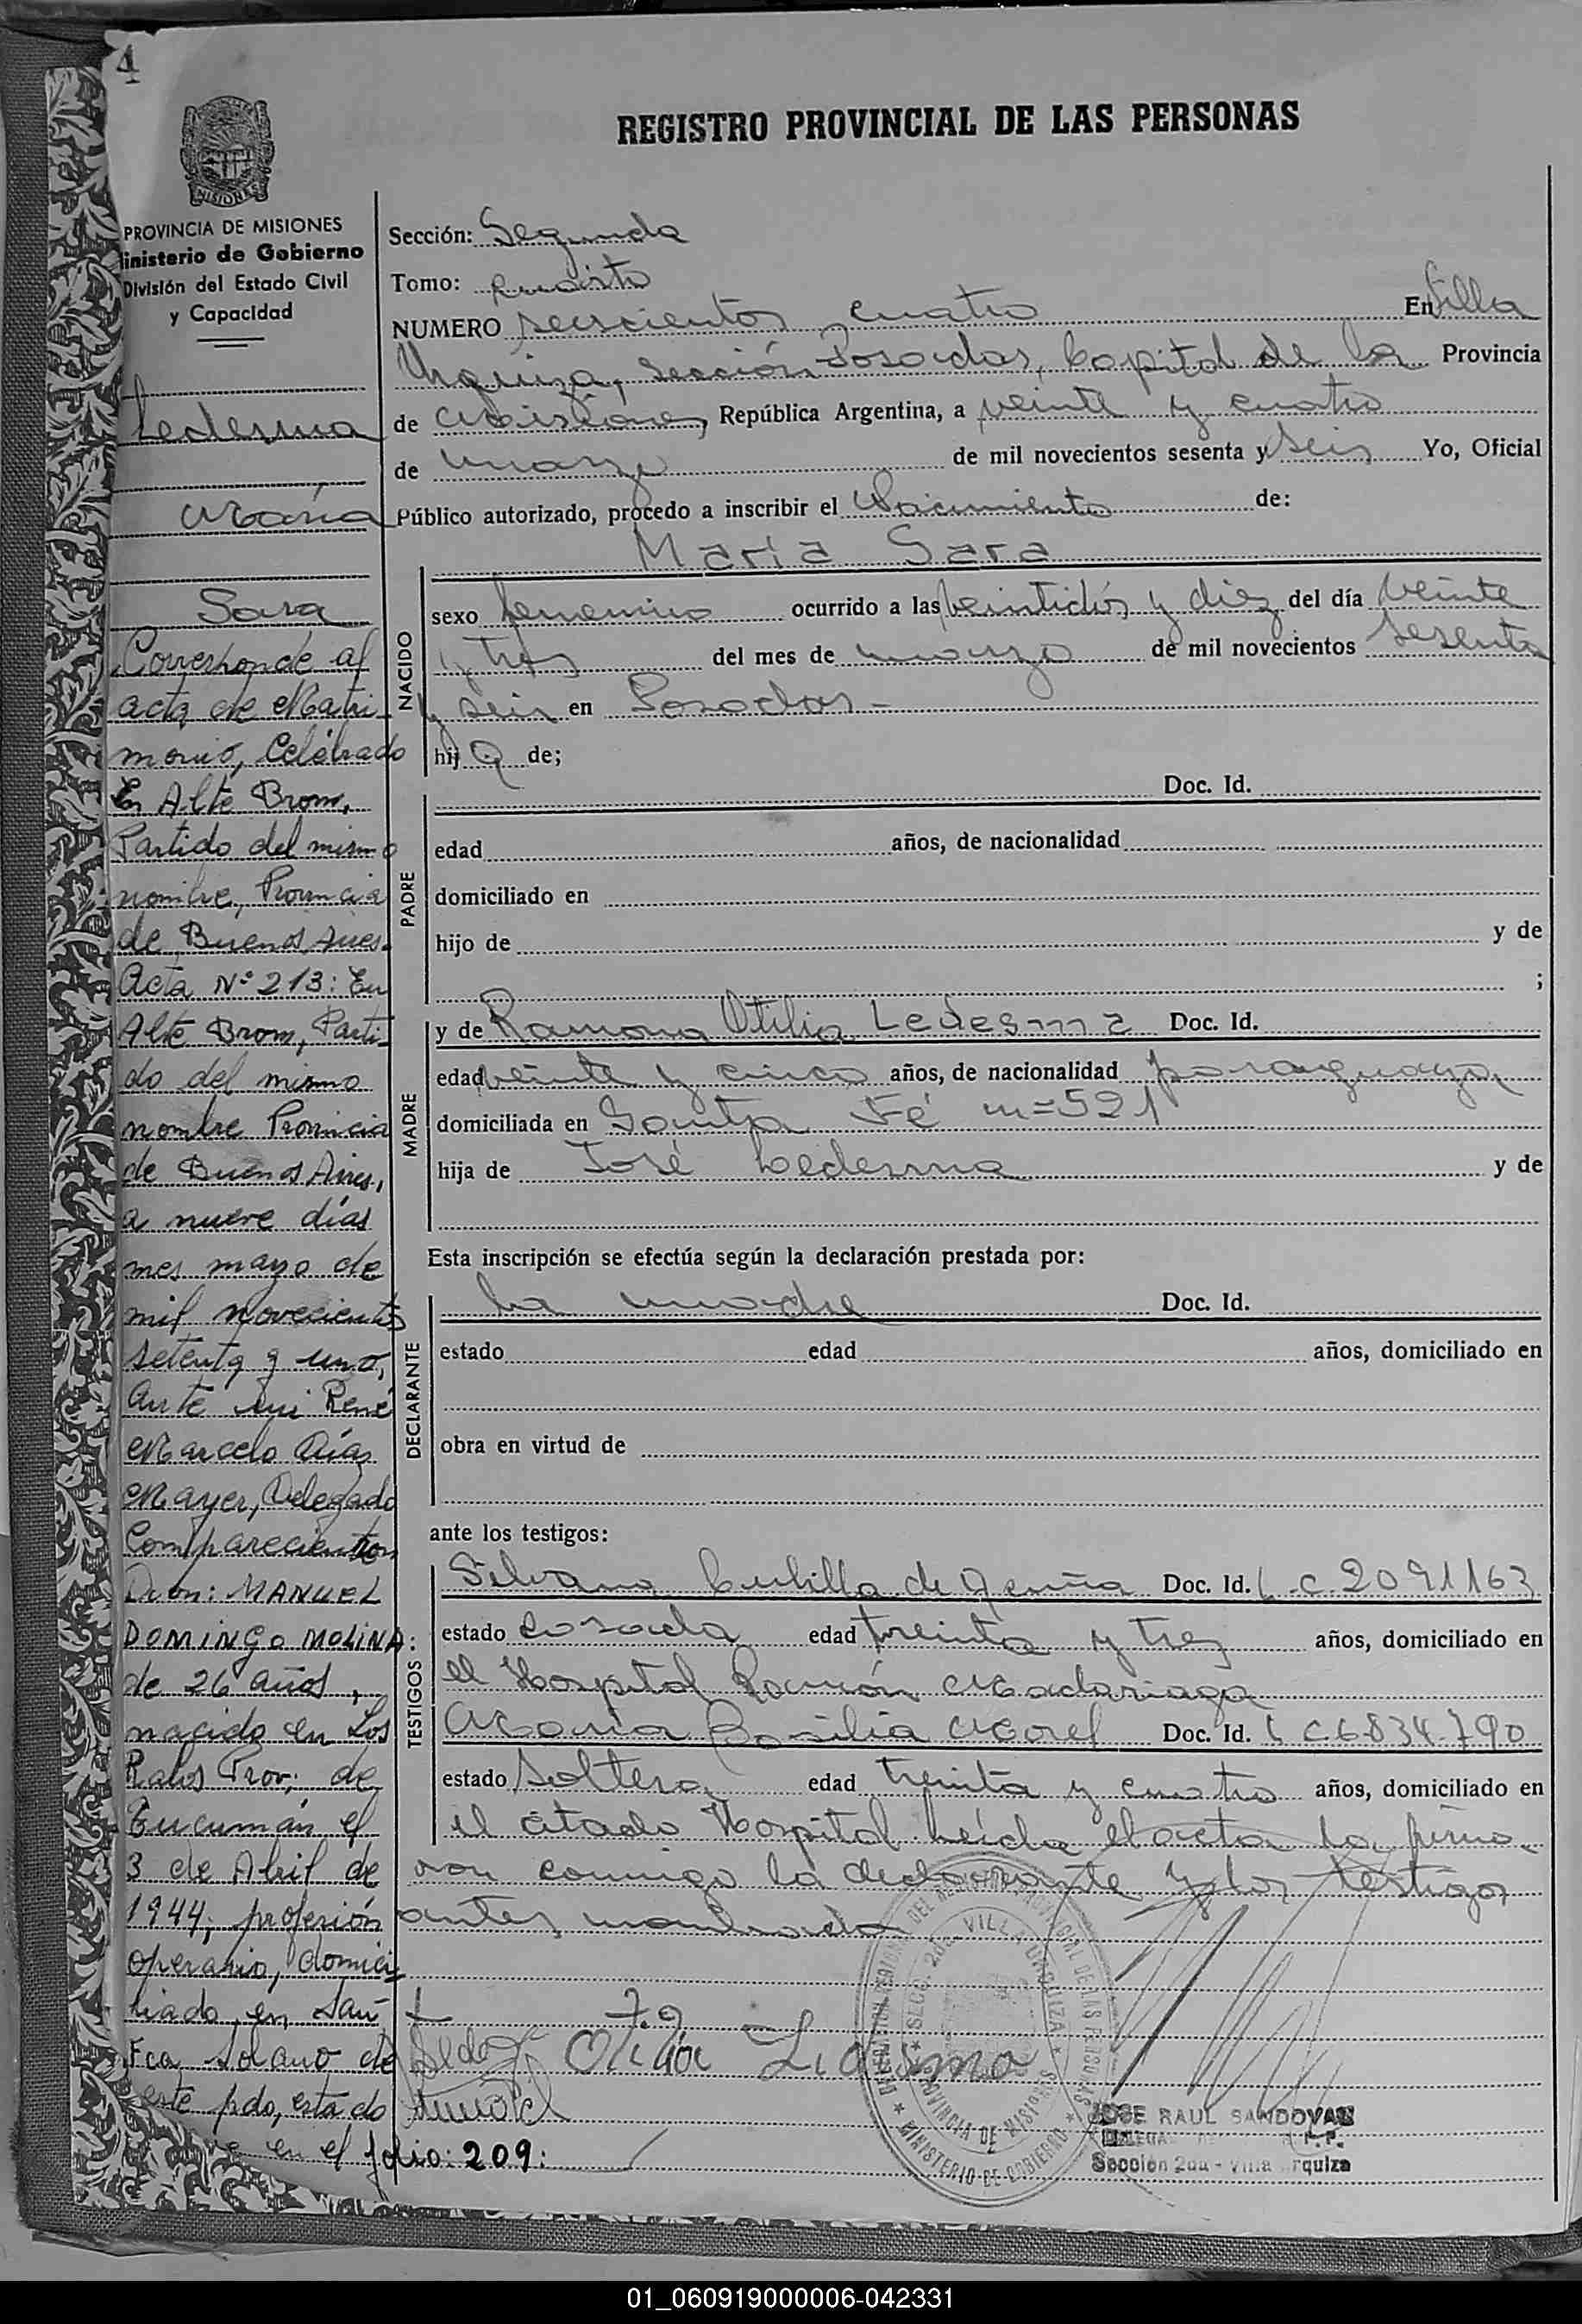 4
REGISTRO PROVINCIAL DE LAS PERSONAS
MISIONES
PROVINCIA DE MISIONES
inisterio de Gobierno
División del Estado Civil
y Capacidad
Ledesma
María
Sara
Corresponde al
acta de Matri
monio, Celebrado
En Alte Brown,
Partido del mismo
nombre, Provincia
de Buenos Aires.
Acta Nº 213: En
Alte Brown, Parti
do del mismo
nombre Provincia
de Buenos Aires,
a nueve días
mes mayo de
mil novecientos
setenta y uno,
Ante mi René
Marcelo Días
Mayer, Delegado
Comparecientron
Don: MANUEL
DOMINGO MOLINA:
de 26 años,
nacido en Los
Ralos Prov; de
Tucumán el
3 de Abril de
1944; profesión
operario, domici
liado, en San
Fco Solano de
este pdo, estado
en el folio: 209:
Sección: Segunda
Tomo:
NUMERO seiscientos cuatro En Villa
Urquiza, Sección Posadas, Capital de la Provincia
de Misiones, República Argentina, a veinte y cuatro
de marzo de mil novecientos sesenta y seis Yo, Oficial
Público autorizado, procedo a inscribir el Nacimiento de:
María Sara
NACIDO
sexo femenino ocurrido a las veintidós y diez del día veinte
y tres del mes de marzo de mil novecientos sesenta
y seis en Posadas-
hij a de;
PADRE
Doc. Id.
edad años, de nacionalidad
domiciliado en
hijo de y de
;
MADRE
y de Ramona Otilia Ledesma Doc. Id.
edad veinte y cinco años, de nacionalidad paraguaya,
domiciliada en Santa Fé nº 521
hija de José Ledesma y de
Esta inscripción se efectúa según la declaración prestada por:
DECLARANTE
la madre Doc. Id.
estado edad años, domiciliado en
obra en virtud de
ante los testigos:
TESTIGOS
Silvana de Doc. Id. L.C. 2091163
estado casada edad treinta y tres años, domiciliado en
el Hospital Ramón Madariaga
María Basilia Morel Doc. Id. L C. 6.834.790
estado soltera edad treinta y cuatro años, domiciliado en
el citado Hospital. Leída el acta la firma
ron conmigo la declarante y los testigos
antes
Otilia Ledesma
DEL REGISTRO PROVINCIAL DE LAS PERSONAS
SECC. 2da VILLA URQUIZA
PROVINCIA DE MISIONES
MINISTERIO DE GOBIERNO
JOSE RAUL SANDOVAL
Sección 2da - Villa Urquiza
01_060919000006-042331